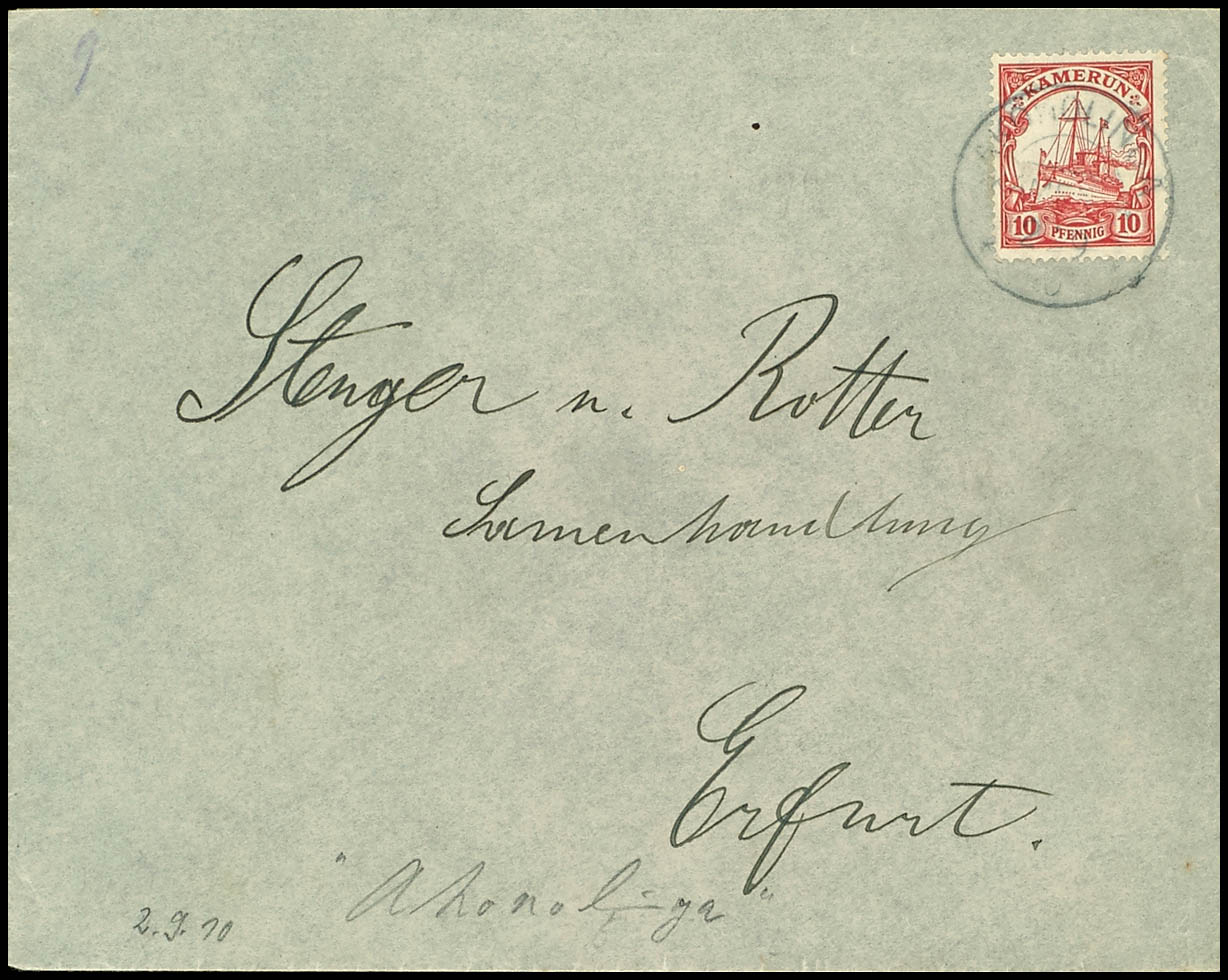 9
KAMERUN
10 PFENNIG 10
Stenger u. Rotter
Samenhandlung
Erfurt.
"Akonolinga"
2.9.10